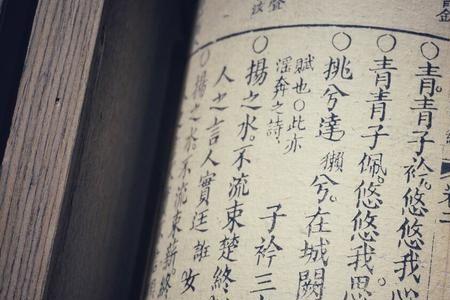 ○青。青子衿。悠悠我
○青青子佩。悠悠我思
○挑兮達獺兮。在城闕
賦也○此亦
淫奔之詩
子衿三
○揚之水。不流束楚終
人之言人實廷誑女
○揚之水。不流束薪終